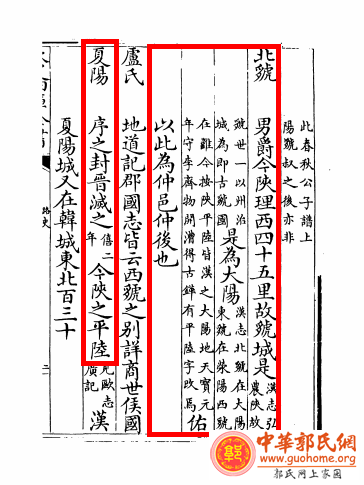 此春秋公子譜上
陽虢叔之後亦非
北虢 男爵今陜理西四十五里故虢城是 漢志弘農陜故
虢世一以州治
城為即古虢國 是為大陽 漢志北虢在大陽
東虢在滎陽西虢
在雍今按陜平陸皆漢之大陽地天寶元
年守李齊物開漕得古鏵有平陸字改焉 佑
以此為仲邑仲後也
盧氏 地道記郡國志皆云西虢之别詳商世侯國
夏陽 序之封晉滅之 僖二年 今陜之平陸 九歐志廣記 漢
夏陽城又在韓城東北百三十
路史
二
中華郭氏網
www.guohome.org
郭氏网上家園